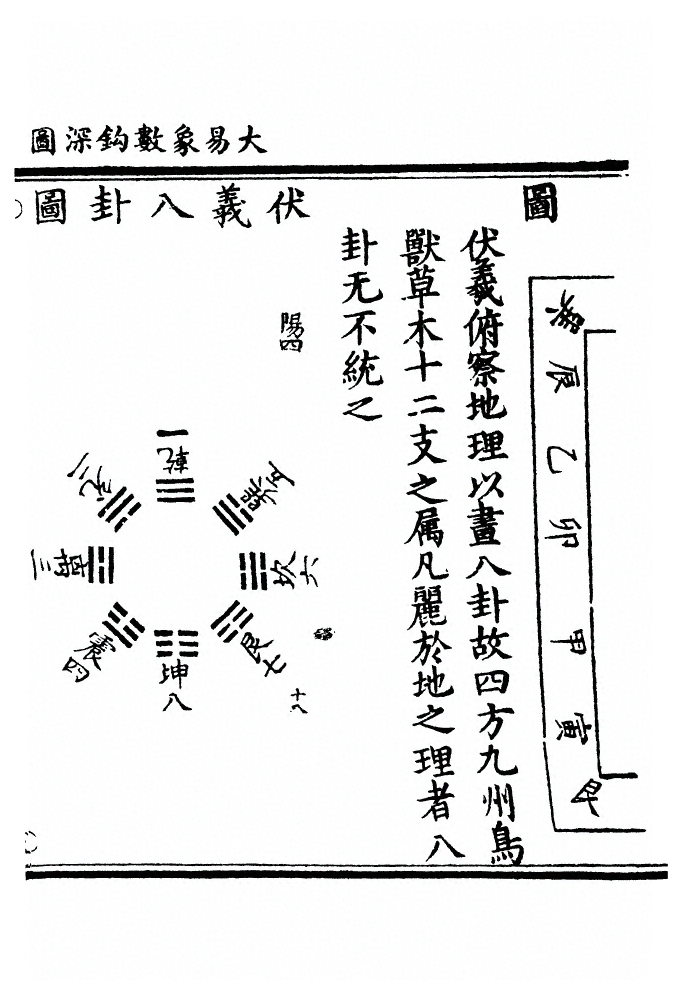 大易象數鈎深圖
圖
巽
辰
乙
卯
甲
寅
艮
伏羲俯察地理以畫八卦故四方九州鳥
獸草木十二支之属凡麗於地之理者八
卦无不統之
伏義八卦圖
陽四
乾一
兌二
離三
震四
巽五
坎六
艮七
坤八
十八